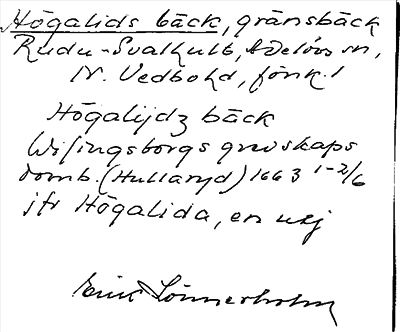 Högalids bäck, gränsbäck
Rudu-Svalhult, Adelövs sn,
N. Vedbo hd, Jönk. l
Högalijdz bäck
Wisingsborgs grevskaps
domb. (Hullaryd) 1663 1-2/6
jfr Högalida, en
Erik Lönnerholm